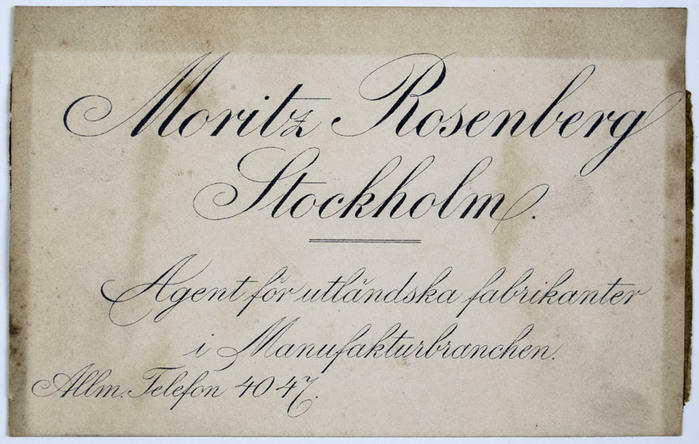 Moritz Rosenberg
Stockholm.
Agent för utländska fabrikanter
i Manufakturbranchen.
Allm. Telefon 40 47.